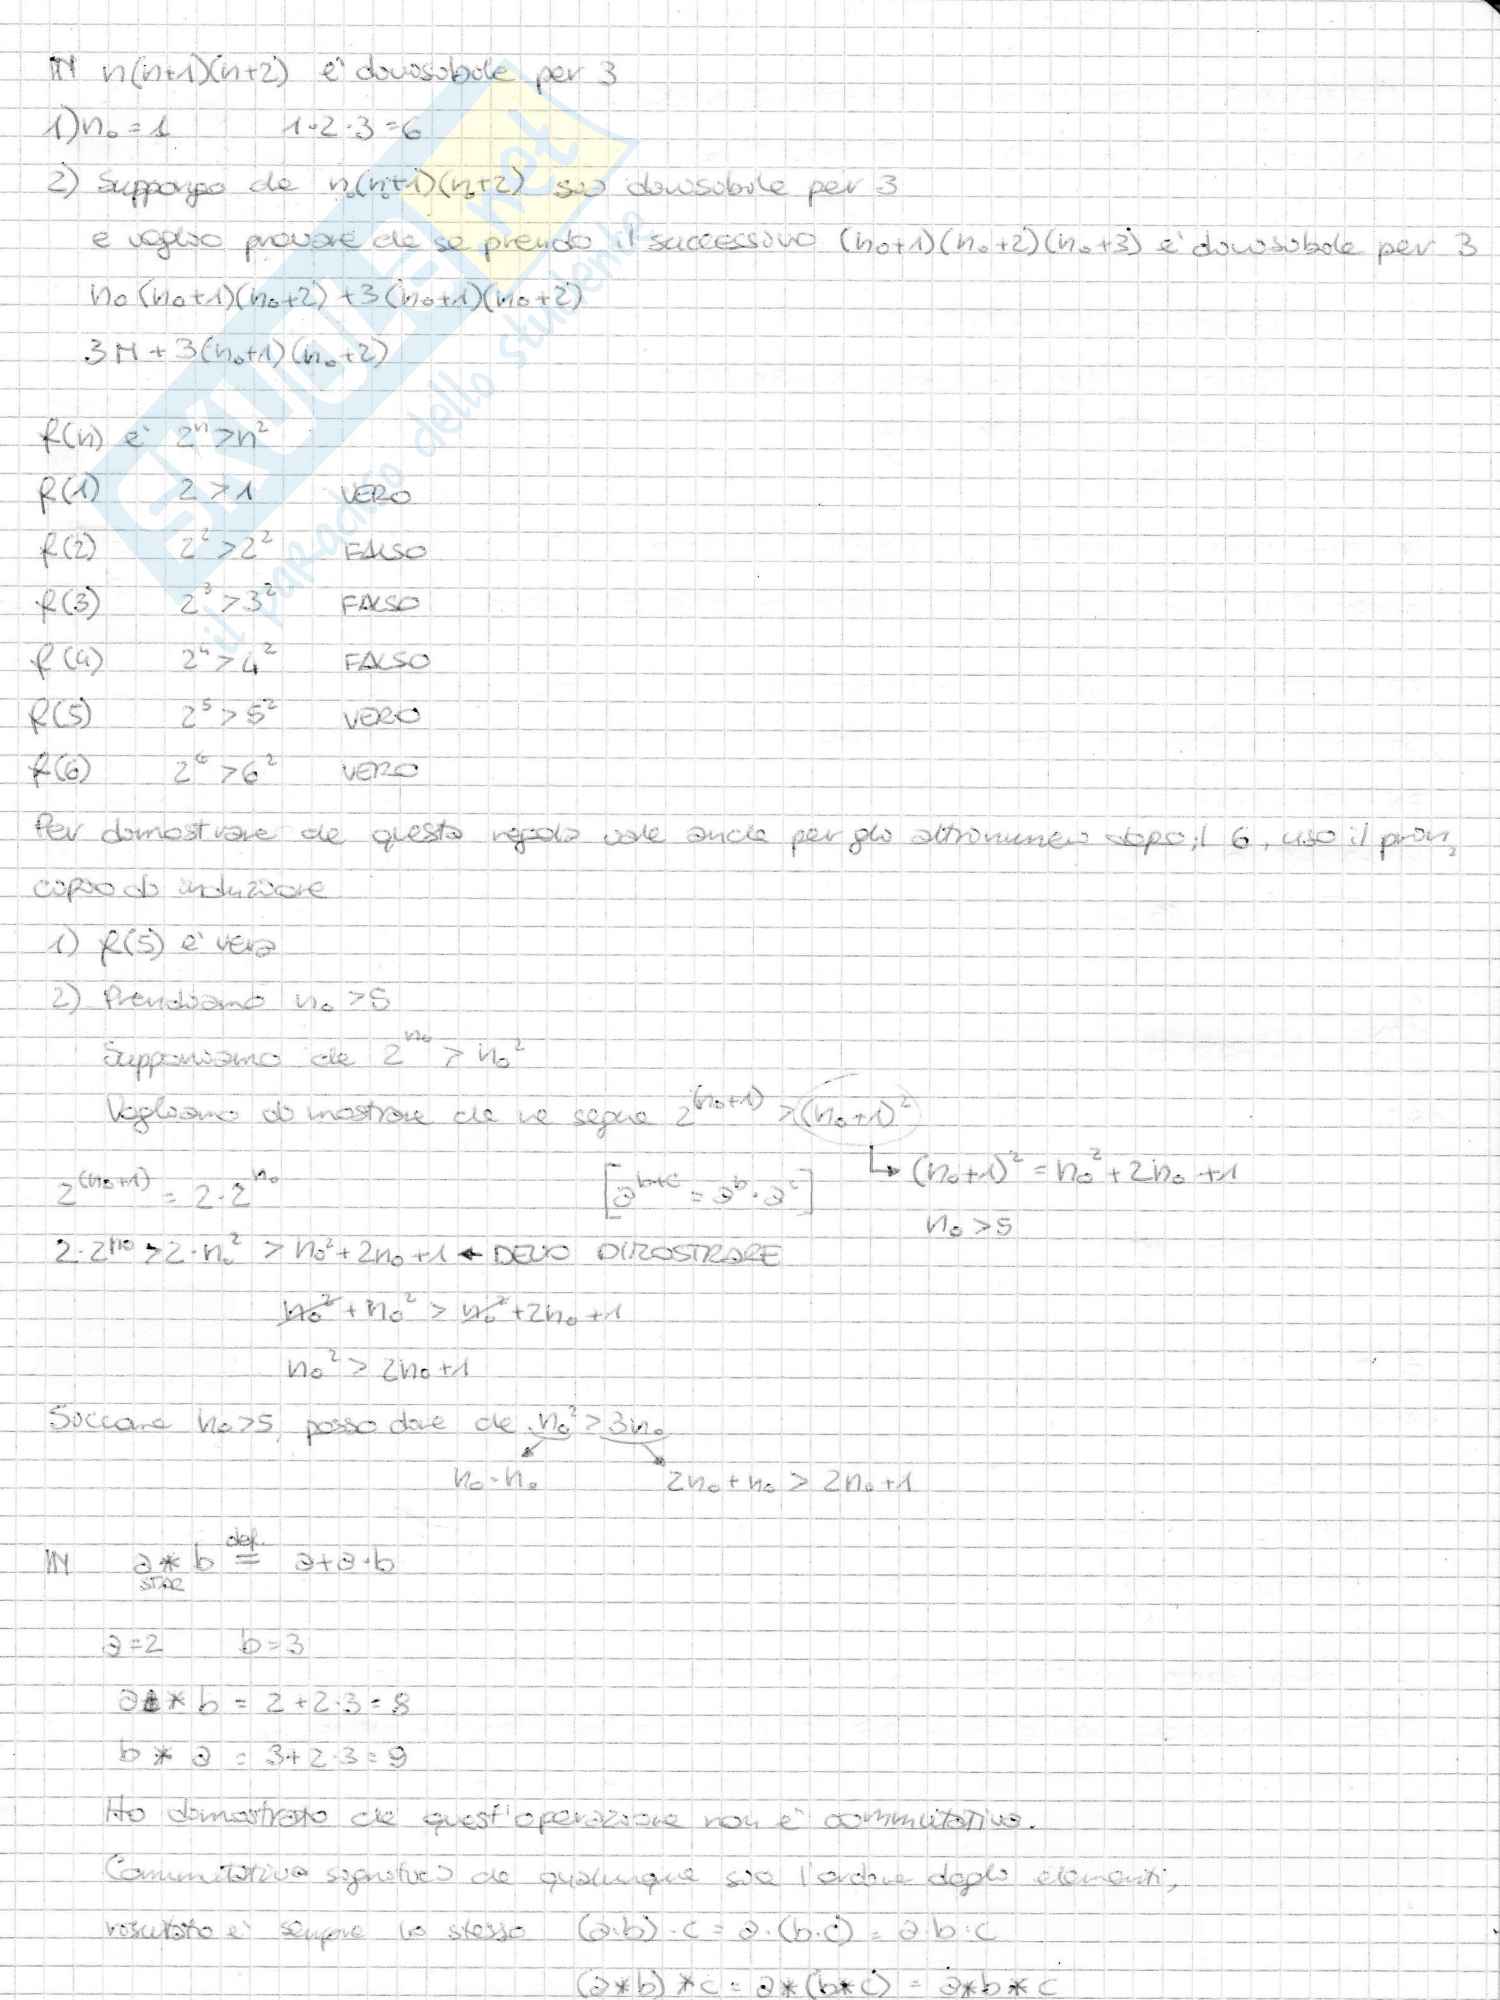 ℕ n(n+1)(n+2) è divisibile per 3
1) n₀ = 1 1·2·3=6
2) Suppongo che n₀(n₀+1)(n₀+2) sia divisibile per 3
e voglio provare che se prendo il successivo (n₀+1)(n₀+2)(n₀+3) è divisibile per 3
n₀(n₀+1)(n₀+2)+3(n₀+1)(n₀+2)
3M + 3(n₀+1)(n₀+2)
f(n) è 2ⁿ>n²
f(1) 2>1 VERO
f(2) 2²>2² FALSO
f(3) 2³>3² FALSO
f(4) 2⁴>4² FALSO
f(5) 2⁵>5² VERO
f(6) 2⁶>6² VERO
Per dimostrare che questa regola vale anche per gli altri numeri dopo il 6, uso il prin,
cipio di induzione
1) f(5) è vera
2) Prendiamo n₀ >5
Supponiamo che 2^n₀ > n₀²
Vogliamo dimostrare che ne segue 2^(n₀+1) > (n₀+1)²
↳ (n₀+1)² = n₀²+2n₀+1
2^(n₀+1) = 2·2^n₀ [a^(b+c) = a^b · a^c]
n₀ >5
2·2^n₀ > 2·n₀² > n₀²+2n₀+1 ← DEVO DIMOSTRARE
n₀² + n₀² > n₀² +2n₀+1
n₀² > 2n₀+1
Siccome n₀>5, posso dire che n₀² > 3n₀
n₀·n₀ 2n₀+n₀ > 2n₀+1
def.
ℕ a * b = a+a·b
STAR
a=2 b=3
a * b = 2+2·3=8
b * a = 3+2·3=9
Ho dimostrato che quest'operazione non è commutativa.
Commutativa significa che qualunque sia l'ordine degli elementi,
risultato è sempre lo stesso (a·b)·c = a·(b·c) = a·b·c
(a*b)*c = a*(b*c) = a*b*c
SKUOLA.net
il paradiso dello studente